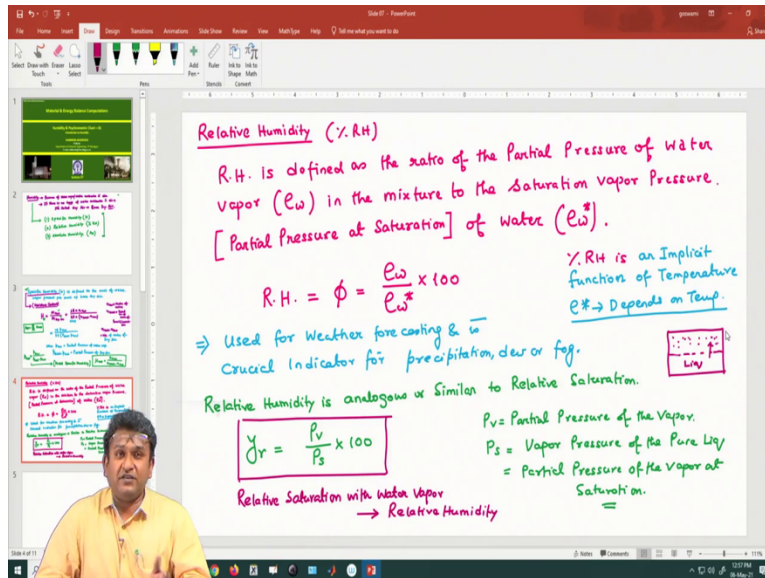 Slide 07 - PowerPoint
goswami
File Home Insert Draw Design Transitions Animations Slide Show Review View MathType Help Tell me what you want to do
Share
Select Draw with Touch Eraser Lasso Select Add Pen Ruler Ink to Shape Ink to Math
Tools Pens Stencils Convert
1
Material & Energy Balance Computations
2
3
4
5
Relative Humidity (% RH)
R.H. is defined as the ratio of the Partial Pressure of water
vapor (ew) in the mixture to the saturation vapor Pressure.
[Partial Pressure at Saturation] of water (ew*).
R.H. = φ = ew / ew* × 100
% RH is an Implicit
function of Temperature
e* → Depends on Temp.
⇒ Used for weather forecasting & is
Crucial Indicator for precipitation, dew or fog.
Liq
Relative Humidity is analogous or Similar to Relative Saturation.
yr = Pv / Ps × 100
Pv = Partial Pressure of the Vapor.
Ps = Vapor Pressure of the Pure Liq
= Partial Pressure of the vapor at
Saturation.
Relative Saturation with Water Vapor
→ Relative Humidity
Slide 4 of 11
Notes Comments 111%
12:07 PM
06-May-21